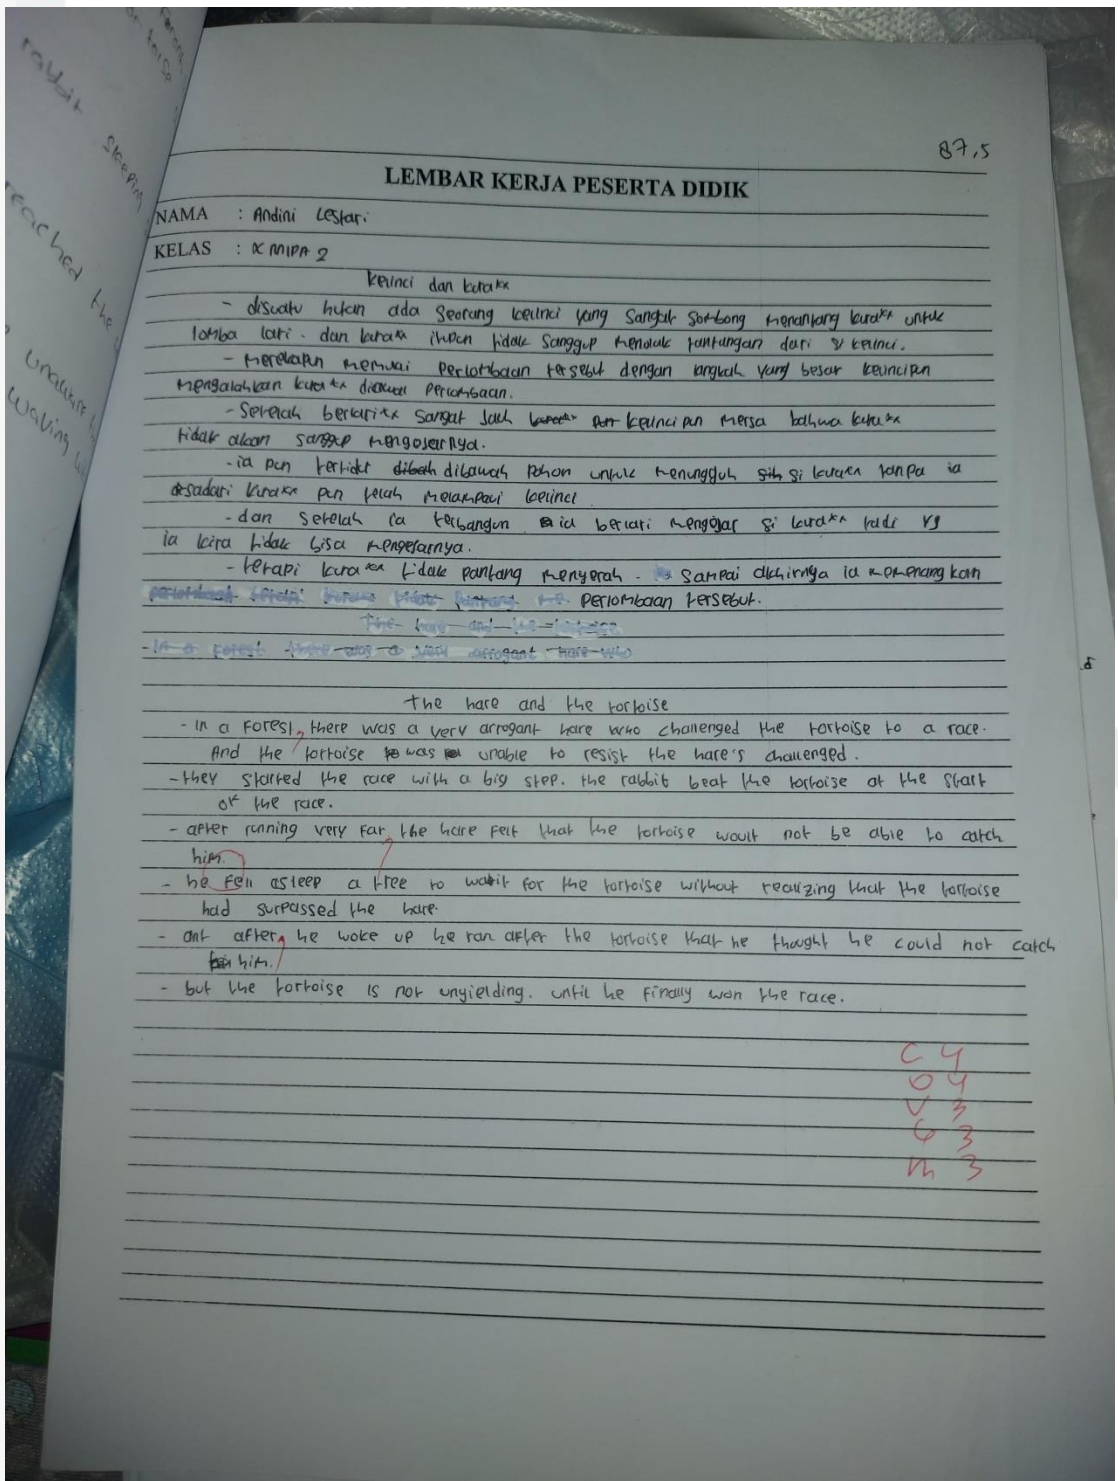 87,5
LEMBAR KERJA PESERTA DIDIK
NAMA : Andini Lestari
KELAS : X MIPA 2
kelinci dan kuraxx
- disuatu hutan ada seorang kelinci yang sangat sombong menantang kuraxx untuk
lomba lari. dan kuraxx itupun tidak sanggup menolak tantangan dari kelinci.
- Merekapun memulai perlombaan tersebut dengan langkah yang besar kelincipun
mengalahkan kuraxx diawal perlombaan.
- Setelah berlarixx sangat jauh kelinci pun mersa bahwa kuraxx
tidak akan sanggup mengejarnya.
- ia pun tertidur dibawah pohon untuk menungguh si kuraxx tanpa ia
sadari kuraxx pun telah melampaui kelinci
- dan setelah ia terbangun ia berlari mengejar si kuraxx tadi yg
ia kira tidak bisa mengejarnya.
- tetapi kuraxx tidak pantang menyerah. sampai akhirnya ia memenangkan
perlombaan tersebut.
The hare and the tortoise
- In a forest there was a very arrogant hare who
The hare and the tortoise
- In a forest, there was a very arrogant hare who challenged the tortoise to a race.
And the tortoise was unable to resist the hare's challenged.
- they started the race with a big step. the rabbit beat the tortoise at the start
of the race.
- after running very far, the hare felt that the tortoise woult not be able to catch
him.
- he fell asleep a tree to wait for the tortoise without realizing that the tortoise
had surpassed the hare.
- ant after, he woke up he ran after the tortoise that he thought he could not catch
him.
- but the tortoise is not unyielding. until he finally won the race.
C 4
O 4
V 3
G 3
M 3
rabbit sleeping
reached the
waving